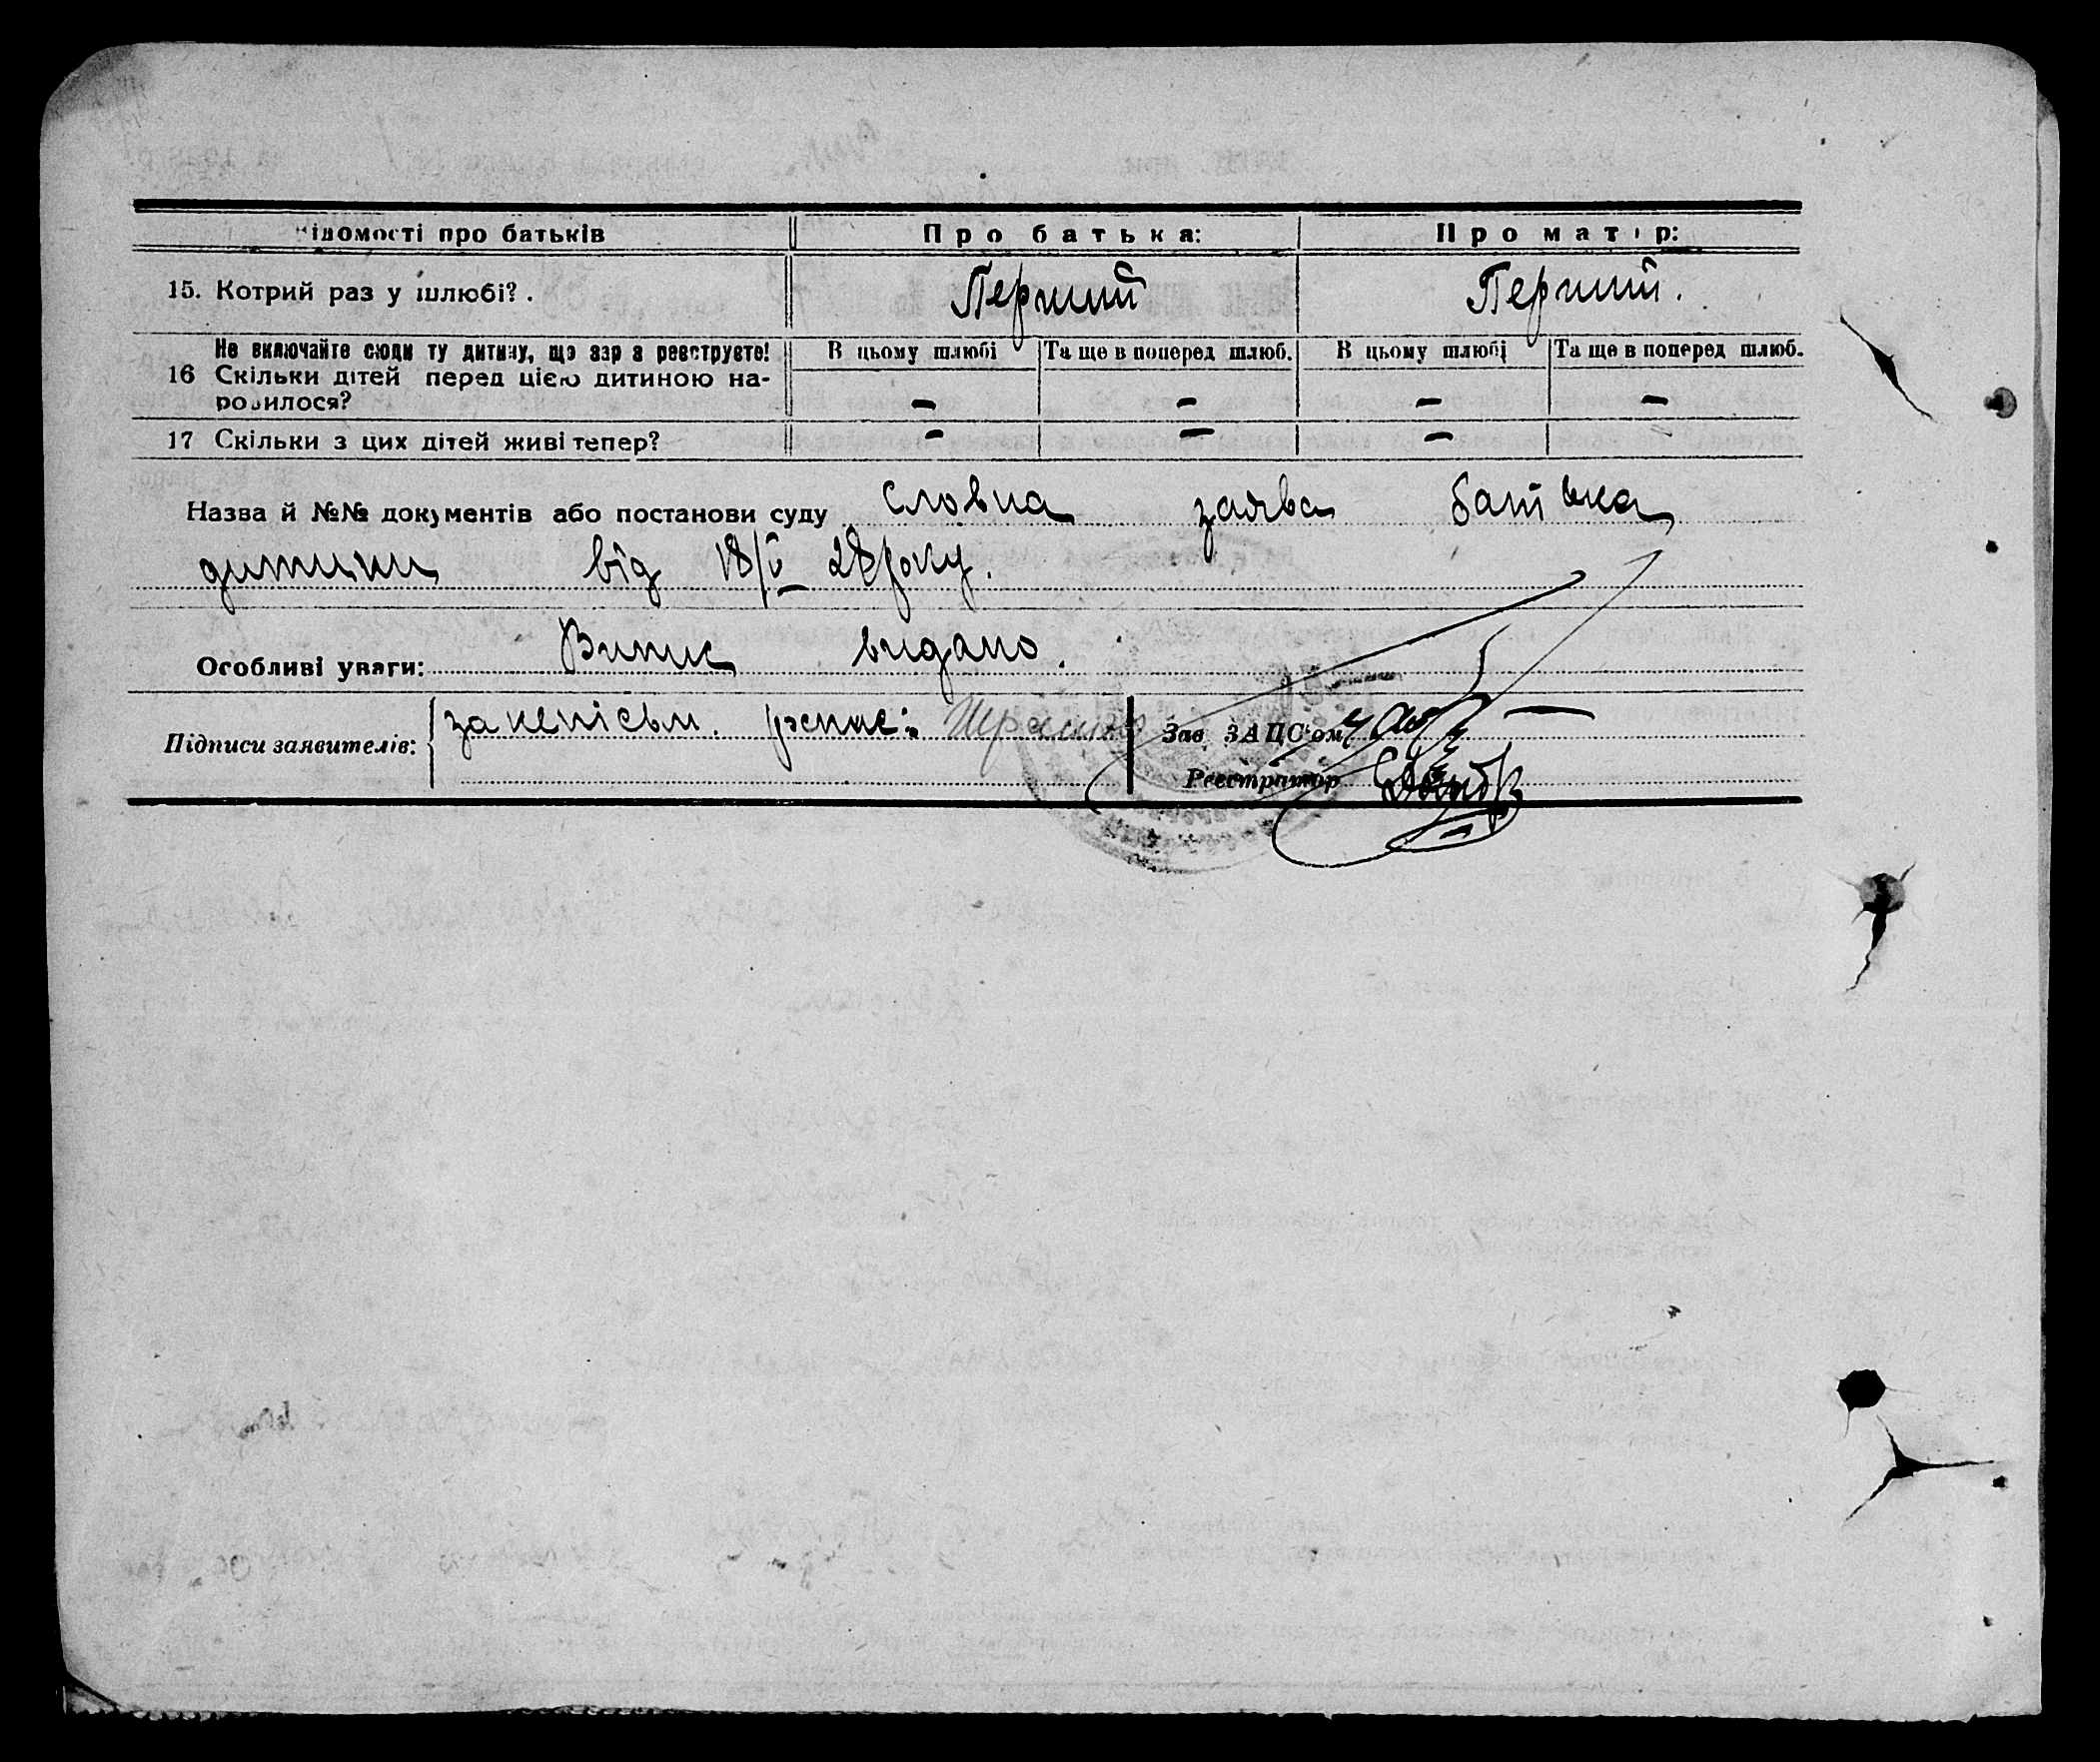 Відомості про батьків Про батька: Про матір:
15. Котрий раз у шлюбі? . Перший Перший.
Не включайте сюди ту дитину, що зар а реєструєте! В цьому шлюбі Та ще в поперед шлюб. В цьому шлюбі Та ще в поперед шлюб.
16 Скільки дітей перед цією дитиною на-
родилося? — — — —
17 Скільки з цих дітей живі тепер? — — —
Назва й №№ документів або постанови суду словна заява батька
дитини від 18/V 28 року.
Особливі уваги: Випис видано.
Підписи заявителів: за неписьм. розпис:
Зав. ЗАЦС'ом
Реєстратор